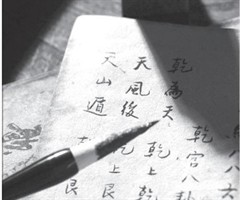 乾宮八卦
乾為天
乾上乾
天風後
乾上艮
天山遁
艮